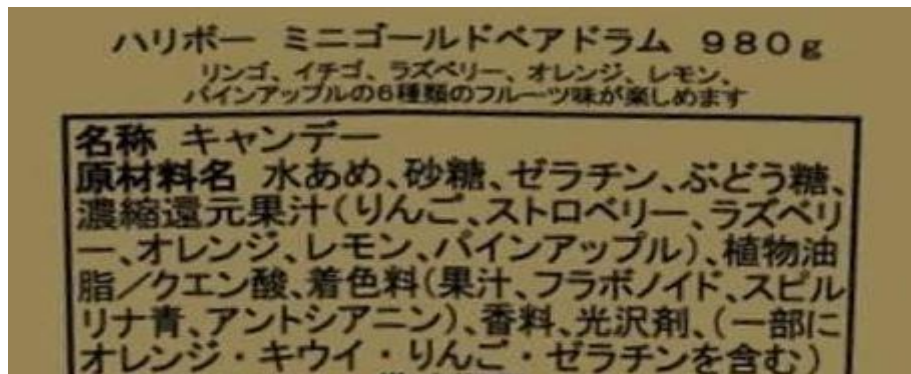 ハリボー ミニゴールドベアドラム 980g
リンゴ、イチゴ、ラズベリー、オレンジ、レモン、
パインアップルの6種類のフルーツ味が楽しめます
名称 キャンデー
原材料名 水あめ、砂糖、ゼラチン、ぶどう糖、
濃縮還元果汁(りんご、ストロベリー、ラズベリ
ー、オレンジ、レモン、パインアップル)、植物油
脂/クエン酸、着色料(果汁、フラボノイド、スピル
リナ青、アントシアニン)、香料、光沢剤、(一部に
オレンジ・キウイ・りんご・ゼラチンを含む)